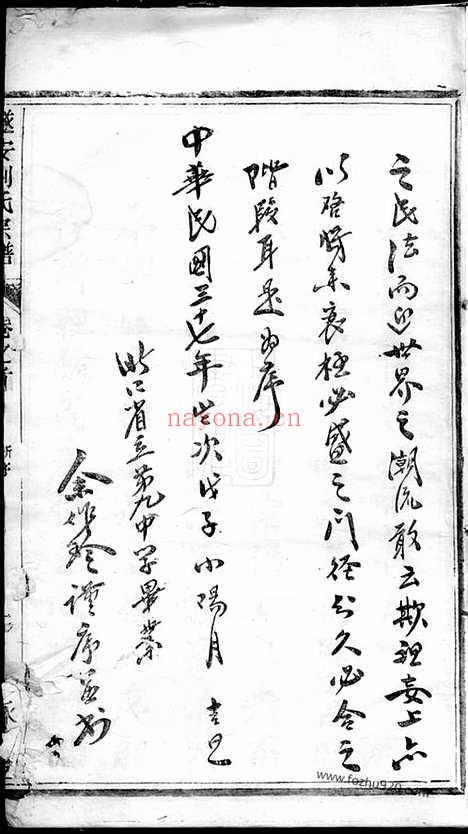 之民法而迎世界之潮流敢云欺祖妄上亦
以啓將來衰極必盛之門徑分久必合之
階段耳是為序
中華民國三十七年歲次戊子小陽月 吉旦
浙江省立第九中學畢業
余 謹序並書
遂安劉氏宗譜 卷之首 新序
nayona.cn
www.fozhu920.com